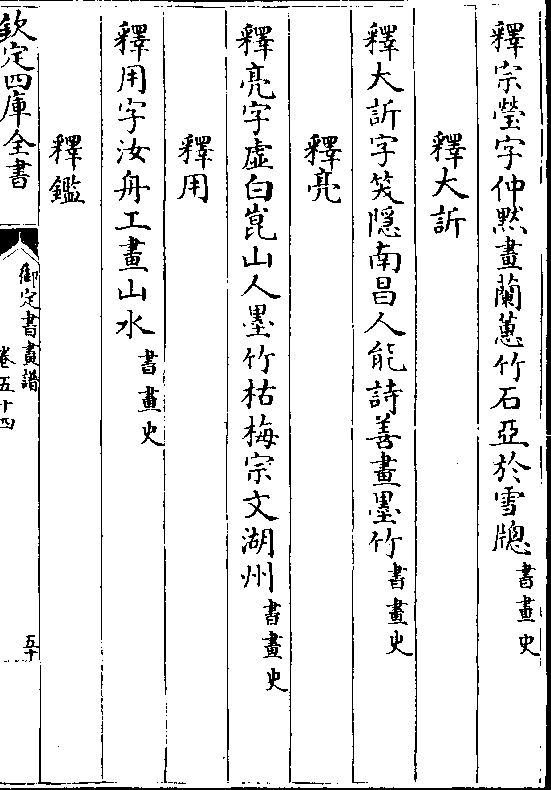 釋宗瑩字仲黙畫蘭蕙竹石亞於雪牕書畫史
釋大訢
釋大訢字笑隱南昌人能詩善畫墨竹書畫史
釋亮
釋亮字虛白崑山人墨竹枯梅宗文湖州書畫史
釋用
釋用字汝舟工畫山水書畫史
釋鑑
欽定四庫全書
御定書畫譜
卷五十四
五十